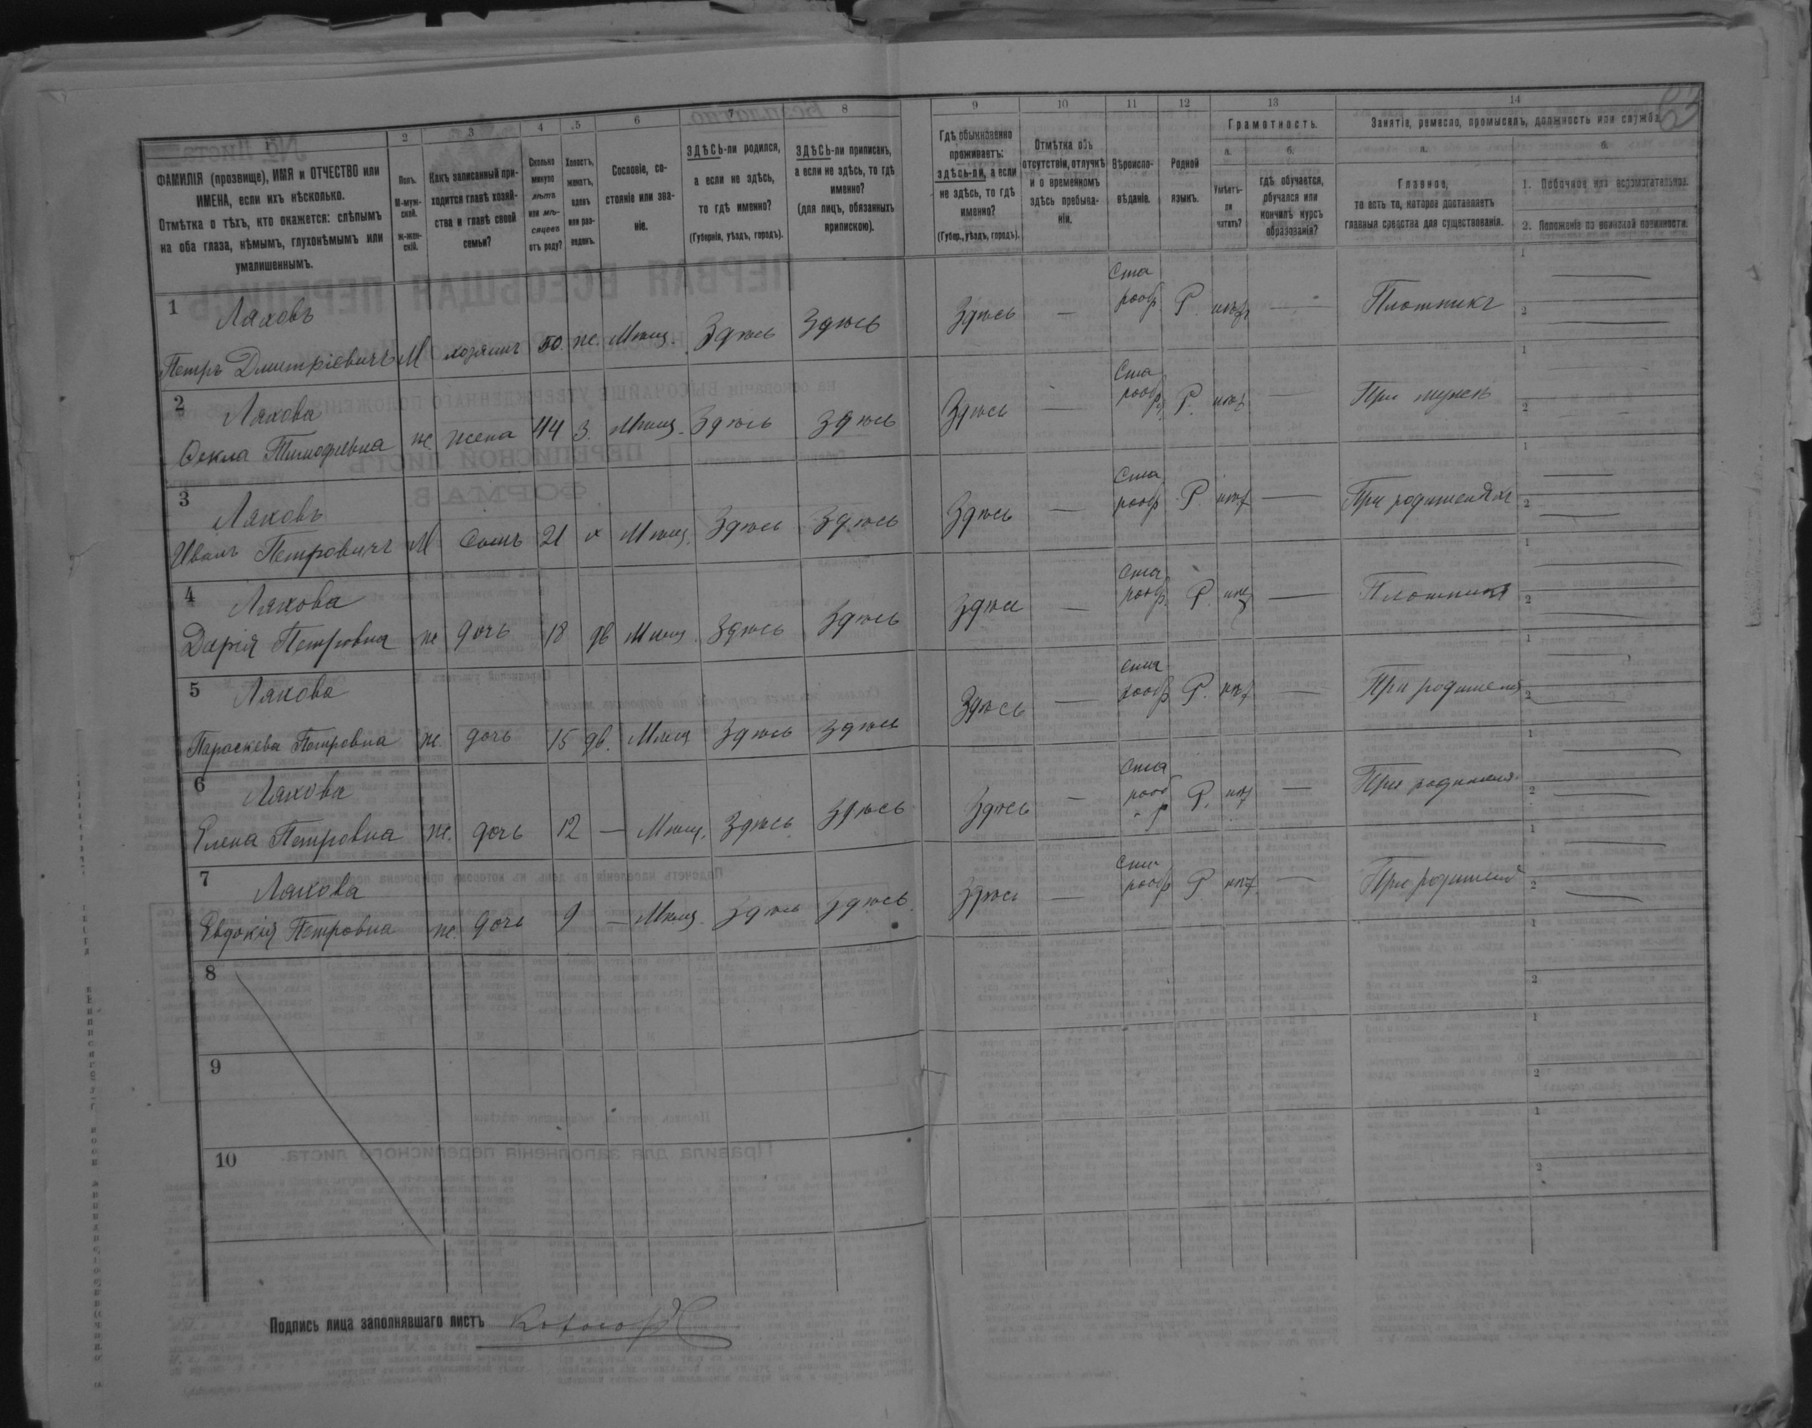 63
1 2 3 4 5 6 7 8 9 10 11 12 13 14
ФАМИЛІЯ (прозвище), ИМЯ и ОТЧЕСТВО или
ИМЕНА, если ихъ нѣсколько.
Отмѣтка о тѣхъ, кто окажется: слѣпымъ
на оба глаза, нѣмымъ, глухонѣмымъ или
умалишеннымъ.
Полъ.
М-муж-
ской.
ж-жен-
скій.
Какъ записанный при-
ходится главѣ хозяй-
ства и главѣ своей
семьи?
Сколько
минуло
лѣтъ
или мѣ-
сяцевъ
отъ роду?
Холостъ,
женатъ,
вдовъ
или раз-
веденъ.
Сословіе, со-
стояніе или зва-
ніе.
ЗДѢСЬ-ли родился,
а если не здѣсь,
то гдѣ именно?
(Губернія, уѣздъ, городъ).
ЗДѢСЬ-ли приписанъ,
а если не здѣсь, то гдѣ
именно?
(для лицъ, обязанныхъ
припискою).
Гдѣ обыкновенно
проживаетъ:
здѣсь-ли, а если
не здѣсь, то гдѣ
именно?
(Губер., уѣздъ, городъ).
Отмѣтка объ
отсутствіи, отлучкѣ
и о временномъ
здѣсь пребыва-
ніи.
Вѣроиспо-
вѣданіе.
Родной
языкъ.
Грамотность.
а.
Умѣетъ-
ли
читать?
б.
гдѣ обучается,
обучался или
кончилъ курсъ
образованія?
Занятіе, ремесло, промыселъ, должность или служба.
а.
Главное,
то есть то, которое доставляетъ
главныя средства для существованія.
б.
1. Побочное или вспомогательное.
2. Положеніе по воинской повинности.
1 Ляховъ
Петръ Дмитріевичъ М хозяинъ 50 ж. Мѣщ. Здѣсь Здѣсь Здѣсь — Ста рообр Р. — Плотникъ
2 Ляхова
Фекла Тимофѣевна ж жена 44 З. Мѣщ. Здѣсь Здѣсь Здѣсь — Ста рообр Р. — При мужѣ
3 Ляховъ
Иванъ Петровичъ М сынъ 21 х Мѣщ. Здѣсь Здѣсь Здѣсь — Ста рообр Р. — При родителяхъ
4 Ляхова
Дарія Петровна ж дочь 18 дв Мѣщ. Здѣсь Здѣсь Здѣсь — Ста рообр. Р. — Плотника
5 Ляхова
Параскева Петровна ж. дочь 15 дв. Мѣщ Здѣсь Здѣсь Здѣсь — Ста рообр Р. —
6 Ляхова
Елена Петровна ж. дочь 12 — Мѣщ. Здѣсь Здѣсь Здѣсь — Ста рооб р Р. —
7 Ляхова
Евдокія Петровна ж. дочь 9 — Мѣщ. Здѣсь Здѣсь Здѣсь — Ста рообр Р —
8
9
10
Подпись лица заполнявшаго листъ